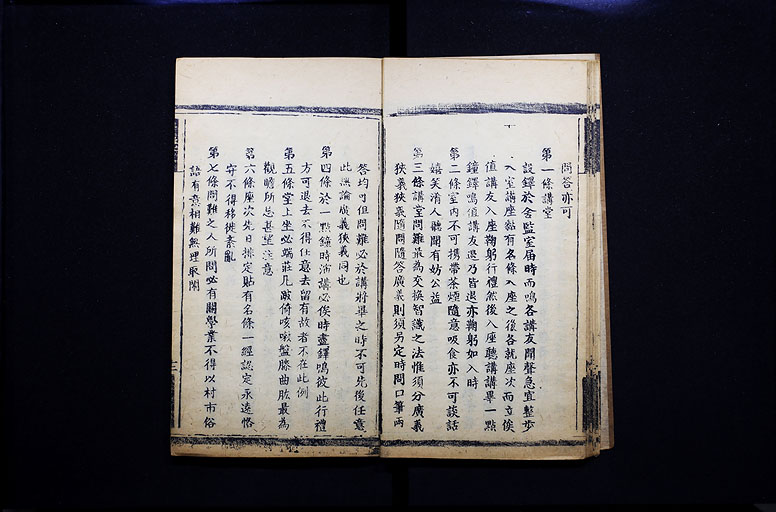 問答亦可
第一條講堂
設鐸於舍監室届時而鳴各講友聞聲急宜整步
入室講座黏有名條入座之後各就座次而立俟
值講友入座鞠躬行禮然後入座聽講講畢一點
鐘鐸鳴值講友退乃皆退亦鞠躬如入時
第二條室内不可携帶茶煙隨意吸食亦不可談話
嬉笑淆人聽聞有妨公益
第三條講堂問難最為交換智識之法惟須分廣義
狹義狹義隨問隨答廣義則須另定時間口筆两
答均可但問難必於講將畢之時不可先後任意
此無論廣義狹義同也
第四條於一點鐘時演講必俟時盡鐸鳴彼此行禮
方可退去不得任意去留有故者不在此例
第五條堂上坐必端莊凡跛倚咳嗽盤膝曲肱最為
觀瞻所忌甚望注意
第六條座次先日排定貼有名條一經認定永遠恪
守不得移徙紊亂
第七條問難之人所問必有關學業不得以村市俗
語有意相難無理取鬧
三